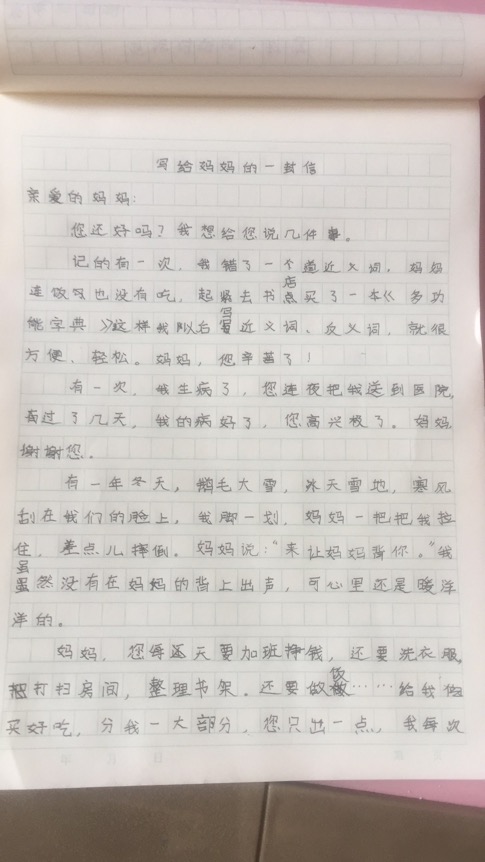 写给妈妈的一封信
亲爱的妈妈:
您还好吗?我想给您说几件事。
记的有一次,我错了一个道近义词,妈妈
连饭也没有吃,起紧去书店买了一本《多功
能字典》这样我以后写近义词、反义词,就很
方便、轻松。妈妈,您辛苦了!
有一次,我生病了,您连夜把我送到医院,
过了几天,我的病好了,您高兴极了。妈妈
谢谢您。
有一年冬天,鹅毛大雪,冰天雪地,寒风
刮在我们的脸上,我脚一划,妈妈一把把我拉
住,差点儿摔倒。妈妈说:“来让妈妈背你。”我
虽然没有在妈妈的背上出声,可心里还是暖洋
洋的。
妈妈,您每天要加班挣钱,还要洗衣服。
打扫房间,整理书架。还要做饭……给我
买好吃,分我一大部分,您只出一点,我每次